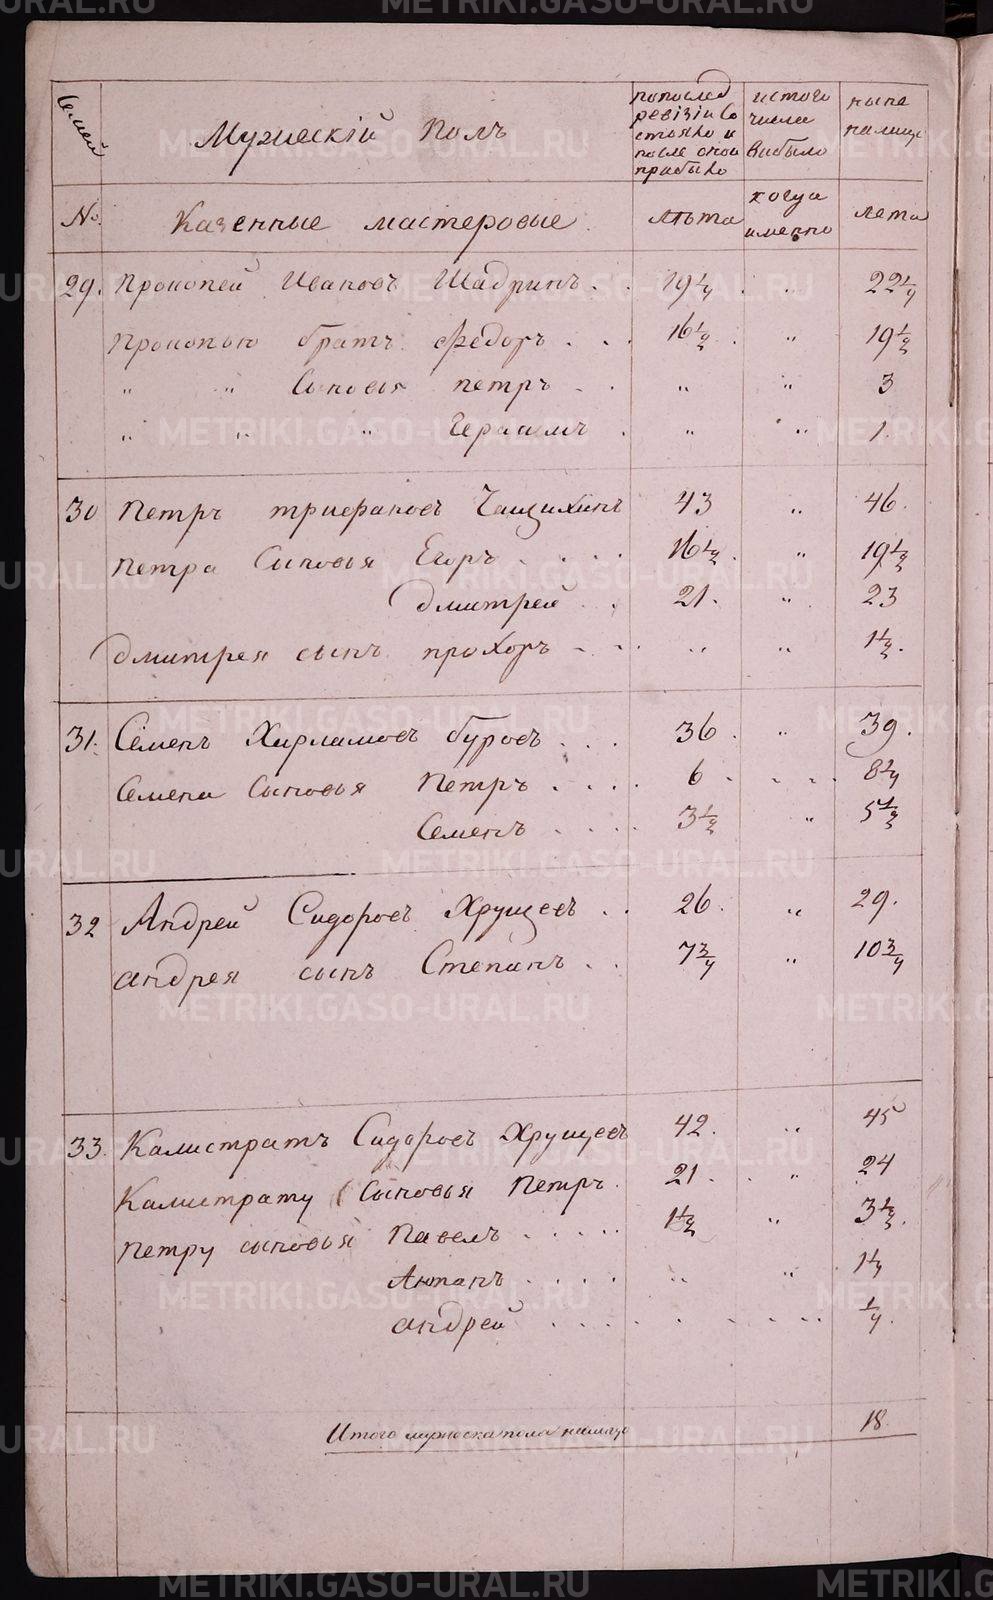 Семей
Мужескій Полъ
попослед
ревізіи со
стояло и
после оной
прибыло
изтого
числа
выбыло
ныне
налицо
№
Казенные мастеровые.
Лѣта
когда
имянно
лета
29. Прокопей Ивановъ Шадринъ . . 19 1/4 . „ 22 1/4
Прокопью братъ Федоръ . . . 16 1/2 . „ 19 1/2
„ „ Сыновья петръ . . „ „ 3
„ „ „ Герасимъ . „ „ 1.
30 Петръ трифановъ Чащихинъ 43 „ 46.
петра Сыновья Егоръ . . . . 16 1/2 . „ 19 1/2
дмитрей . . 21. „ . 23
дмитрея сынъ прохоръ - . . „ „ 1 1/2.
31. Семенъ Харламовъ буровъ . . . 36 . „ 39.
Семена Сыновья Петръ . . . . 6 . . . . . 8 1/4
Семенъ . . . . 3 1/2 „ 5 1/2
32 Андрей Сидоровъ Хрущевъ . . 26. „ 29.
андрея сынъ Степанъ . . 7 3/4 „ 10 3/4
33. Калистратъ Сидоровъ Хрущевъ 42. „ 45
Калистрату Сыновья Петръ. 21 . . „ 24
петру сыновья Павелъ . . . . . 1 1/2 „ 3 1/2.
. . . . „ „ . 1 1/4
андрей . . . . . . . . . 1/4.
Итого мужеска пола налицо 18.
METRIKI.GASO-URAL.RU